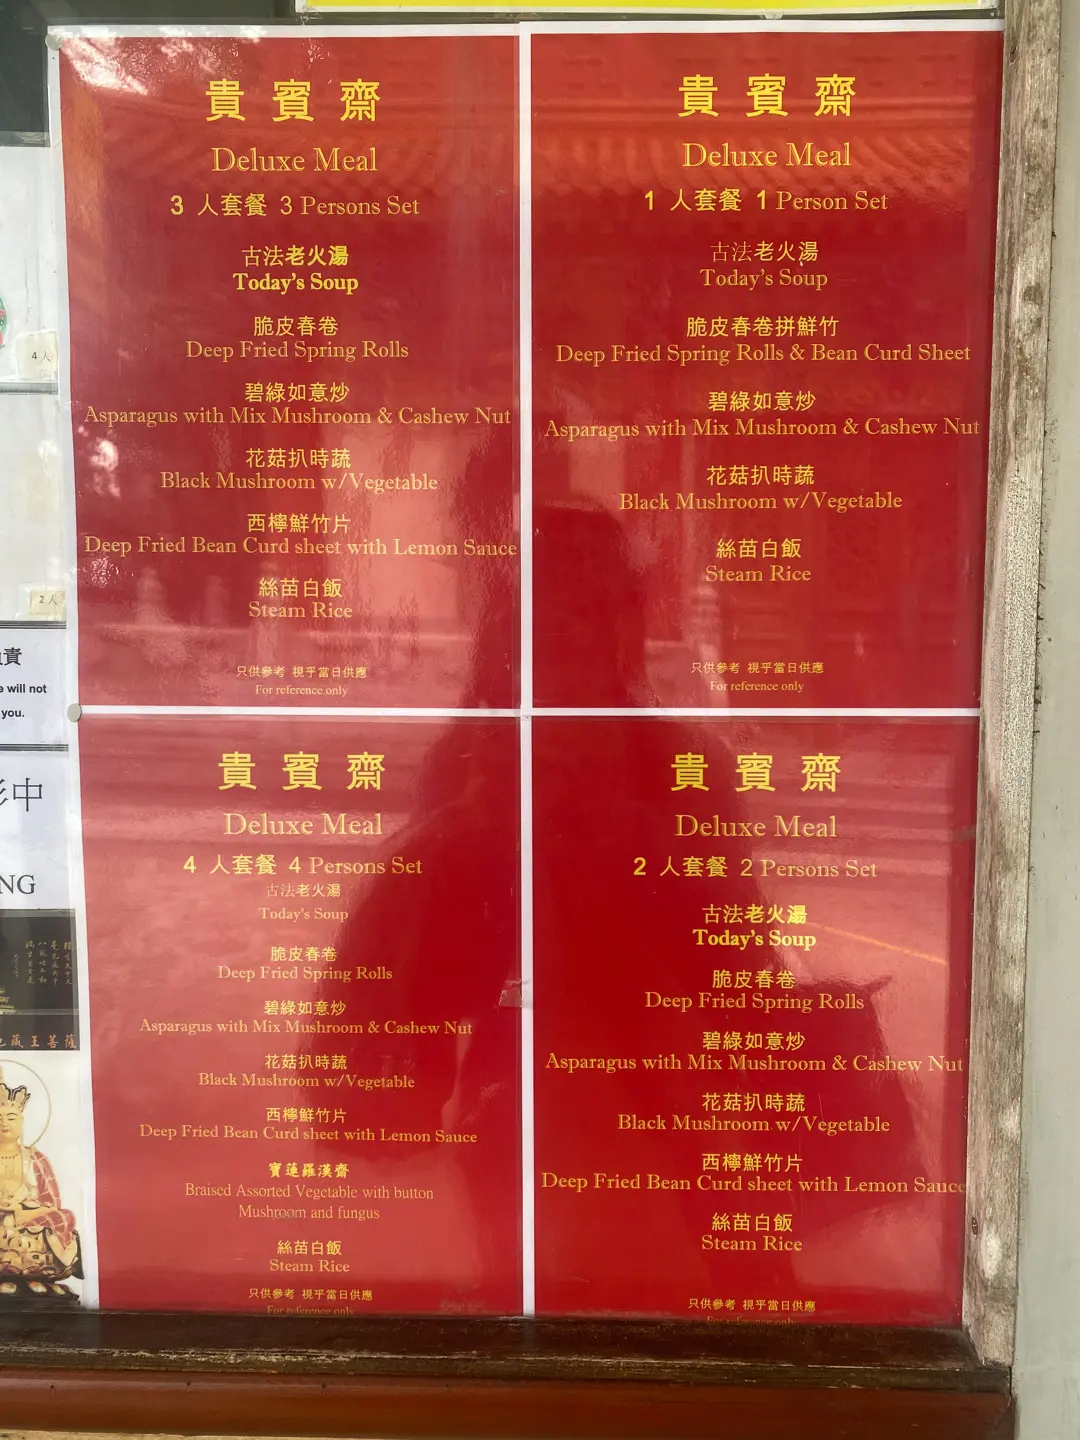 貴賓齋
Deluxe Meal
3 人套餐 3 Persons Set
古法老火湯
Today's Soup
脆皮春卷
Deep Fried Spring Rolls
碧綠如意炒
Asparagus with Mix Mushroom & Cashew Nut
花菇扒時蔬
Black Mushroom w/Vegetable
西檸鮮竹片
Deep Fried Bean Curd sheet with Lemon Sauce
絲苗白飯
Steam Rice
只供參考 視乎當日供應
For reference only
貴賓齋
Deluxe Meal
1 人套餐 1 Person Set
古法老火湯
Today's Soup
脆皮春卷拼鮮竹
Deep Fried Spring Rolls & Bean Curd Sheet
碧綠如意炒
Asparagus with Mix Mushroom & Cashew Nut
花菇扒時蔬
Black Mushroom w/Vegetable
絲苗白飯
Steam Rice
只供參考 視乎當日供應
For reference only
貴賓齋
Deluxe Meal
4 人套餐 4 Persons Set
古法老火湯
Today's Soup
脆皮春卷
Deep Fried Spring Rolls
碧綠如意炒
Asparagus with Mix Mushroom & Cashew Nut
花菇扒時蔬
Black Mushroom w/Vegetable
西檸鮮竹片
Deep Fried Bean Curd sheet with Lemon Sauce
寶蓮羅漢齋
Braised Assorted Vegetable with button
Mushroom and fungus
絲苗白飯
Steam Rice
只供參考 視乎當日供應
For reference only
貴賓齋
Deluxe Meal
2 人套餐 2 Persons Set
古法老火湯
Today's Soup
脆皮春卷
Deep Fried Spring Rolls
碧綠如意炒
Asparagus with Mix Mushroom & Cashew Nut
花菇扒時蔬
Black Mushroom w/Vegetable
西檸鮮竹片
Deep Fried Bean Curd sheet with Lemon Sauce
絲苗白飯
Steam Rice
只供參考 視乎當日供應
For reference only
4 人
2 人
責
will not
you.
中
NG
地藏王菩薩